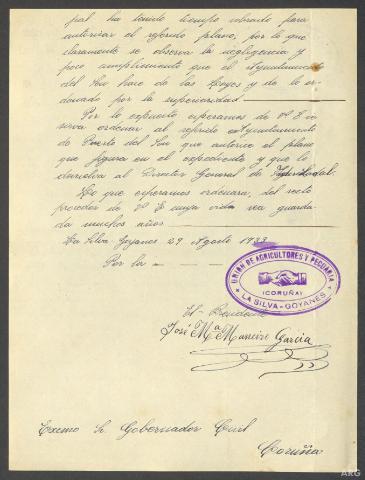 pal ha tenido tiempo sobrado para
autorizar el referido plano, por lo que
claramente se observa la negligencia y
poco cumplimiento que el Ayuntamiento
del Son hace de las Leyes y de lo or-
denado por la superioridad.
Por lo expuesto esperamos de V E se
sirva ordenar al referido Ayuntamiento
de Puerto del Son que autorice el plano
que figura en el expediente y que lo
devuelva al Director General de
Lo que esperamos ordenará, del recto
proceder de V E cuya vida sea guarda-
da muchos años.
La Silva Goyanes 29 Agosto 1933
Por la
UNION DE AGRICULTORES Y PECUARIA
(CORUÑA)
* LA SILVA-GOYANES *
El Presidente
José Mª Maneiro Garcia
Excmo Sr. Gobernador Civil
Coruña
ARG